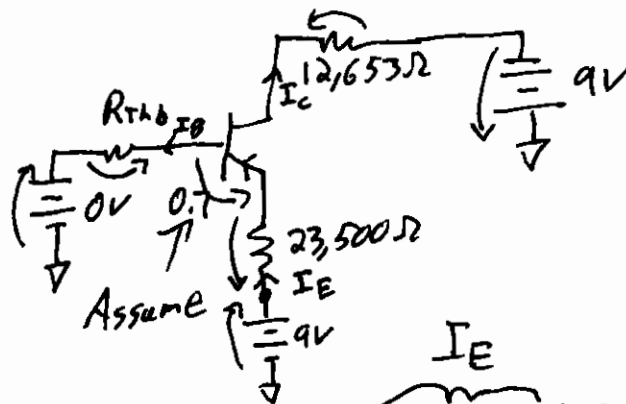 12,653Ω
I_C
9V
R_Thb
I_B
0V
0.7
23,500Ω
I_E
Assume
9V
I_E